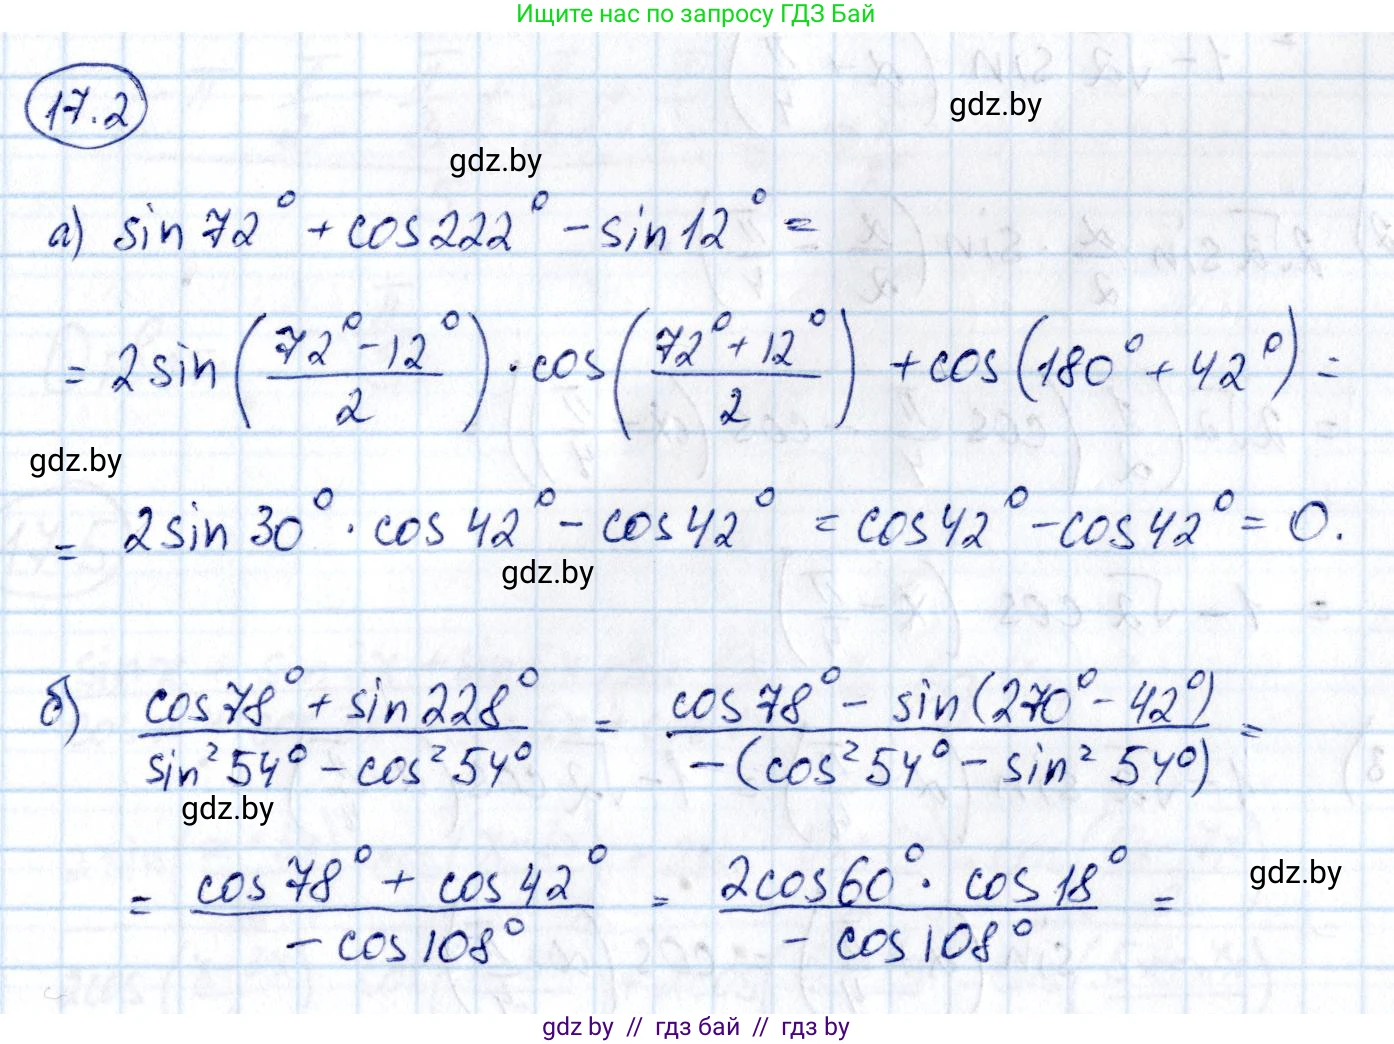 Ищите нас по запросу ГДЗ Бай
17.2
gdz.by
gdz.by
а) sin 72° + cos 222° − sin 12° =
= 2 sin ((72° − 12°)/2) · cos ((72° + 12°)/2) + cos (180° + 42°) =
gdz.by
= 2 sin 30° · cos 42° − cos 42° = cos 42° − cos 42° = 0.
gdz.by
б) (cos 78° + sin 228°)/(sin² 54° − cos² 54°) = (cos 78° − sin (270° − 42°))/(−(cos² 54° − sin² 54°)) =
gdz.by
= (cos 78° + cos 42°)/(− cos 108°) = (2 cos 60° · cos 18°)/(− cos 108°) =
gdz.by
gdz by // гдз бай // гдз by